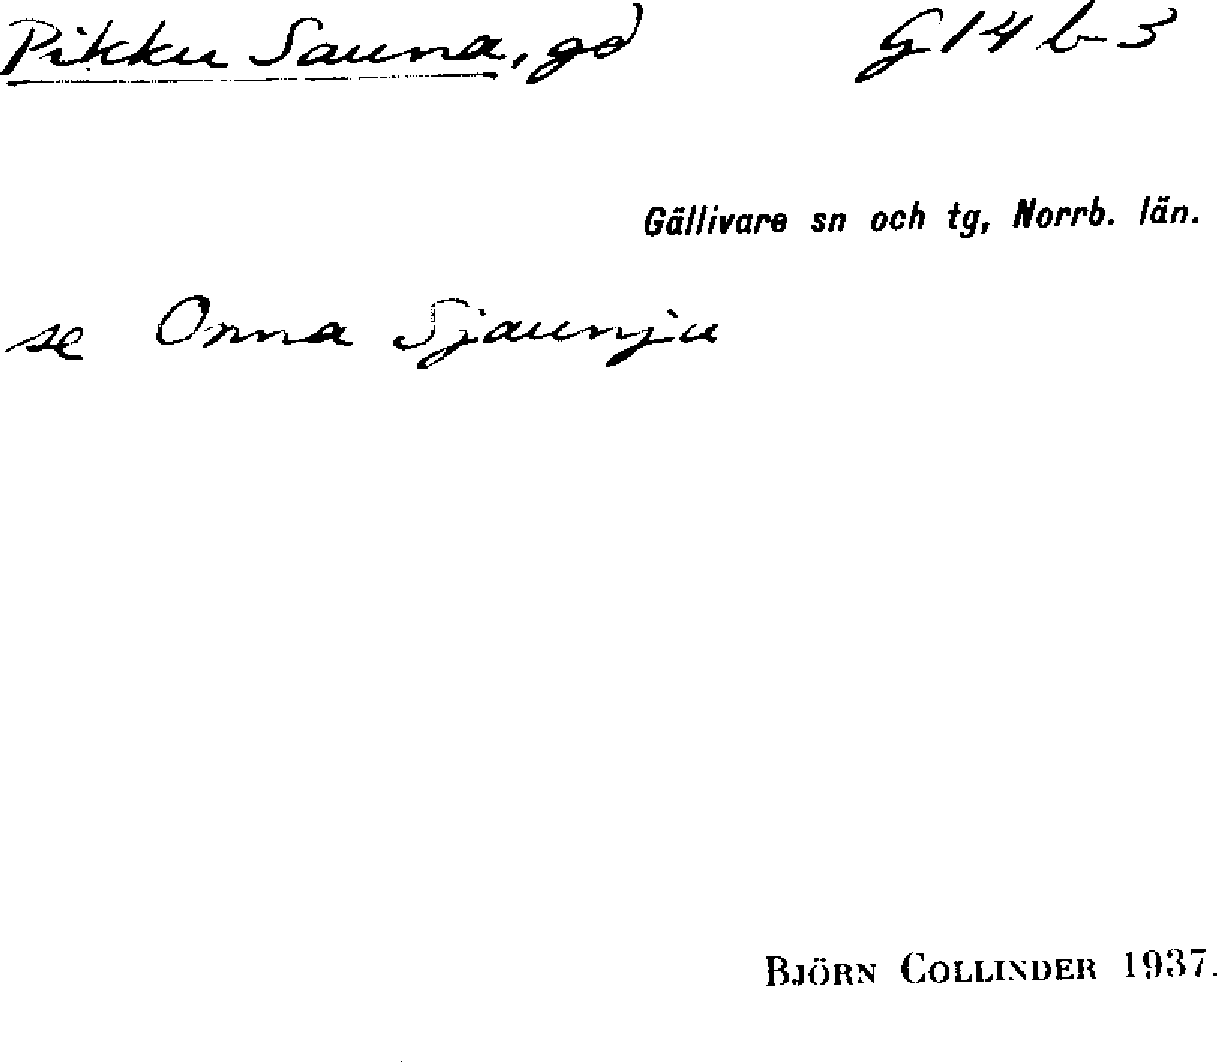 Pikku Sauna, gd G14 b-3
Gällivare sn och tg, Norrb. län.
se Onna Sjaunju
BJÖRN COLLINDER 1937.